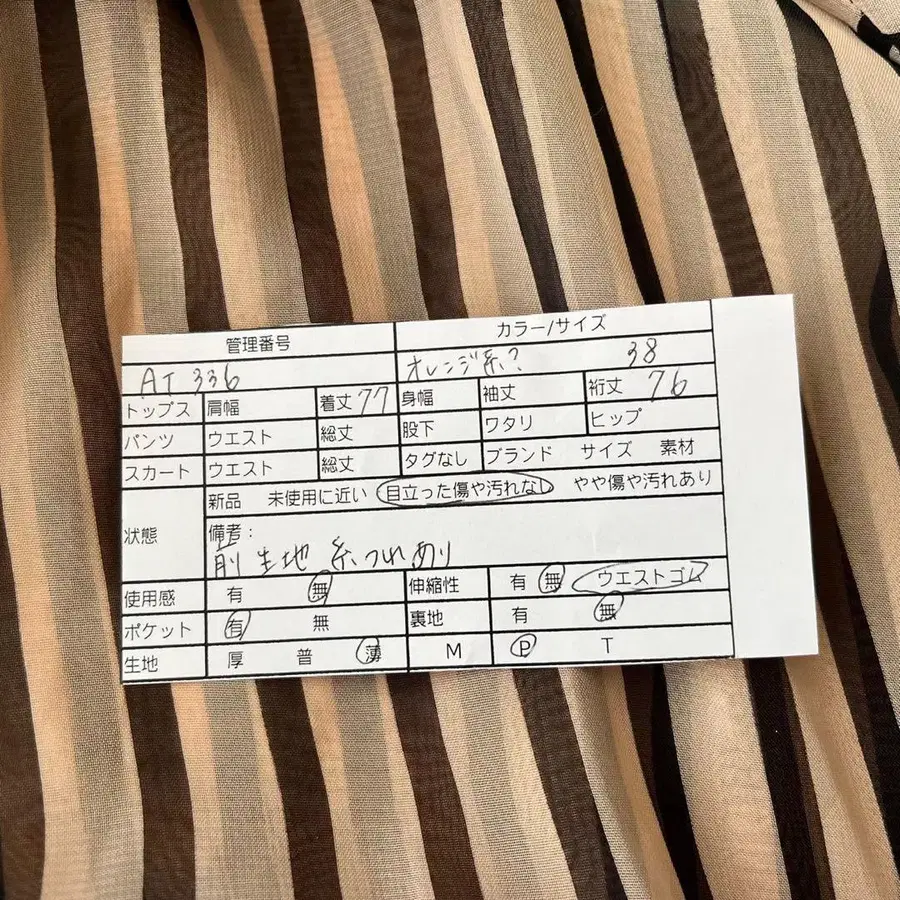 管理番号 カラー/サイズ
AT 336 オレンジ系? 38
トップス 肩幅 着丈 77 身幅 袖丈 裄丈 76
パンツ ウエスト 総丈 股下 ワタリ ヒップ
スカート ウエスト 総丈 タグなし ブランド サイズ 素材
状態 新品 未使用に近い 目立った傷や汚れなし やや傷や汚れあり
備考:
前生地 糸つれあり
使用感 有 無 伸縮性 有 無 ウエストゴム
ポケット 有 無 裏地 有 無
生地 厚 普 薄 M P T